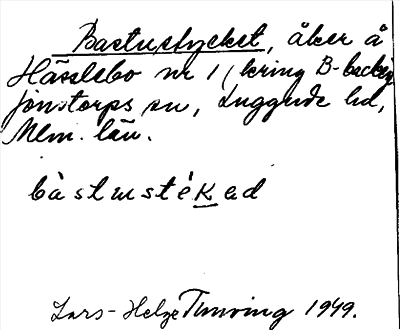 Bastustycket, åker å
Hässlebo nr 1 (kring B-backen
Jonstorps sn, Luggude hd,
Mlm. län.
bàstustékad
Lars-Helge Thuvring 1949.